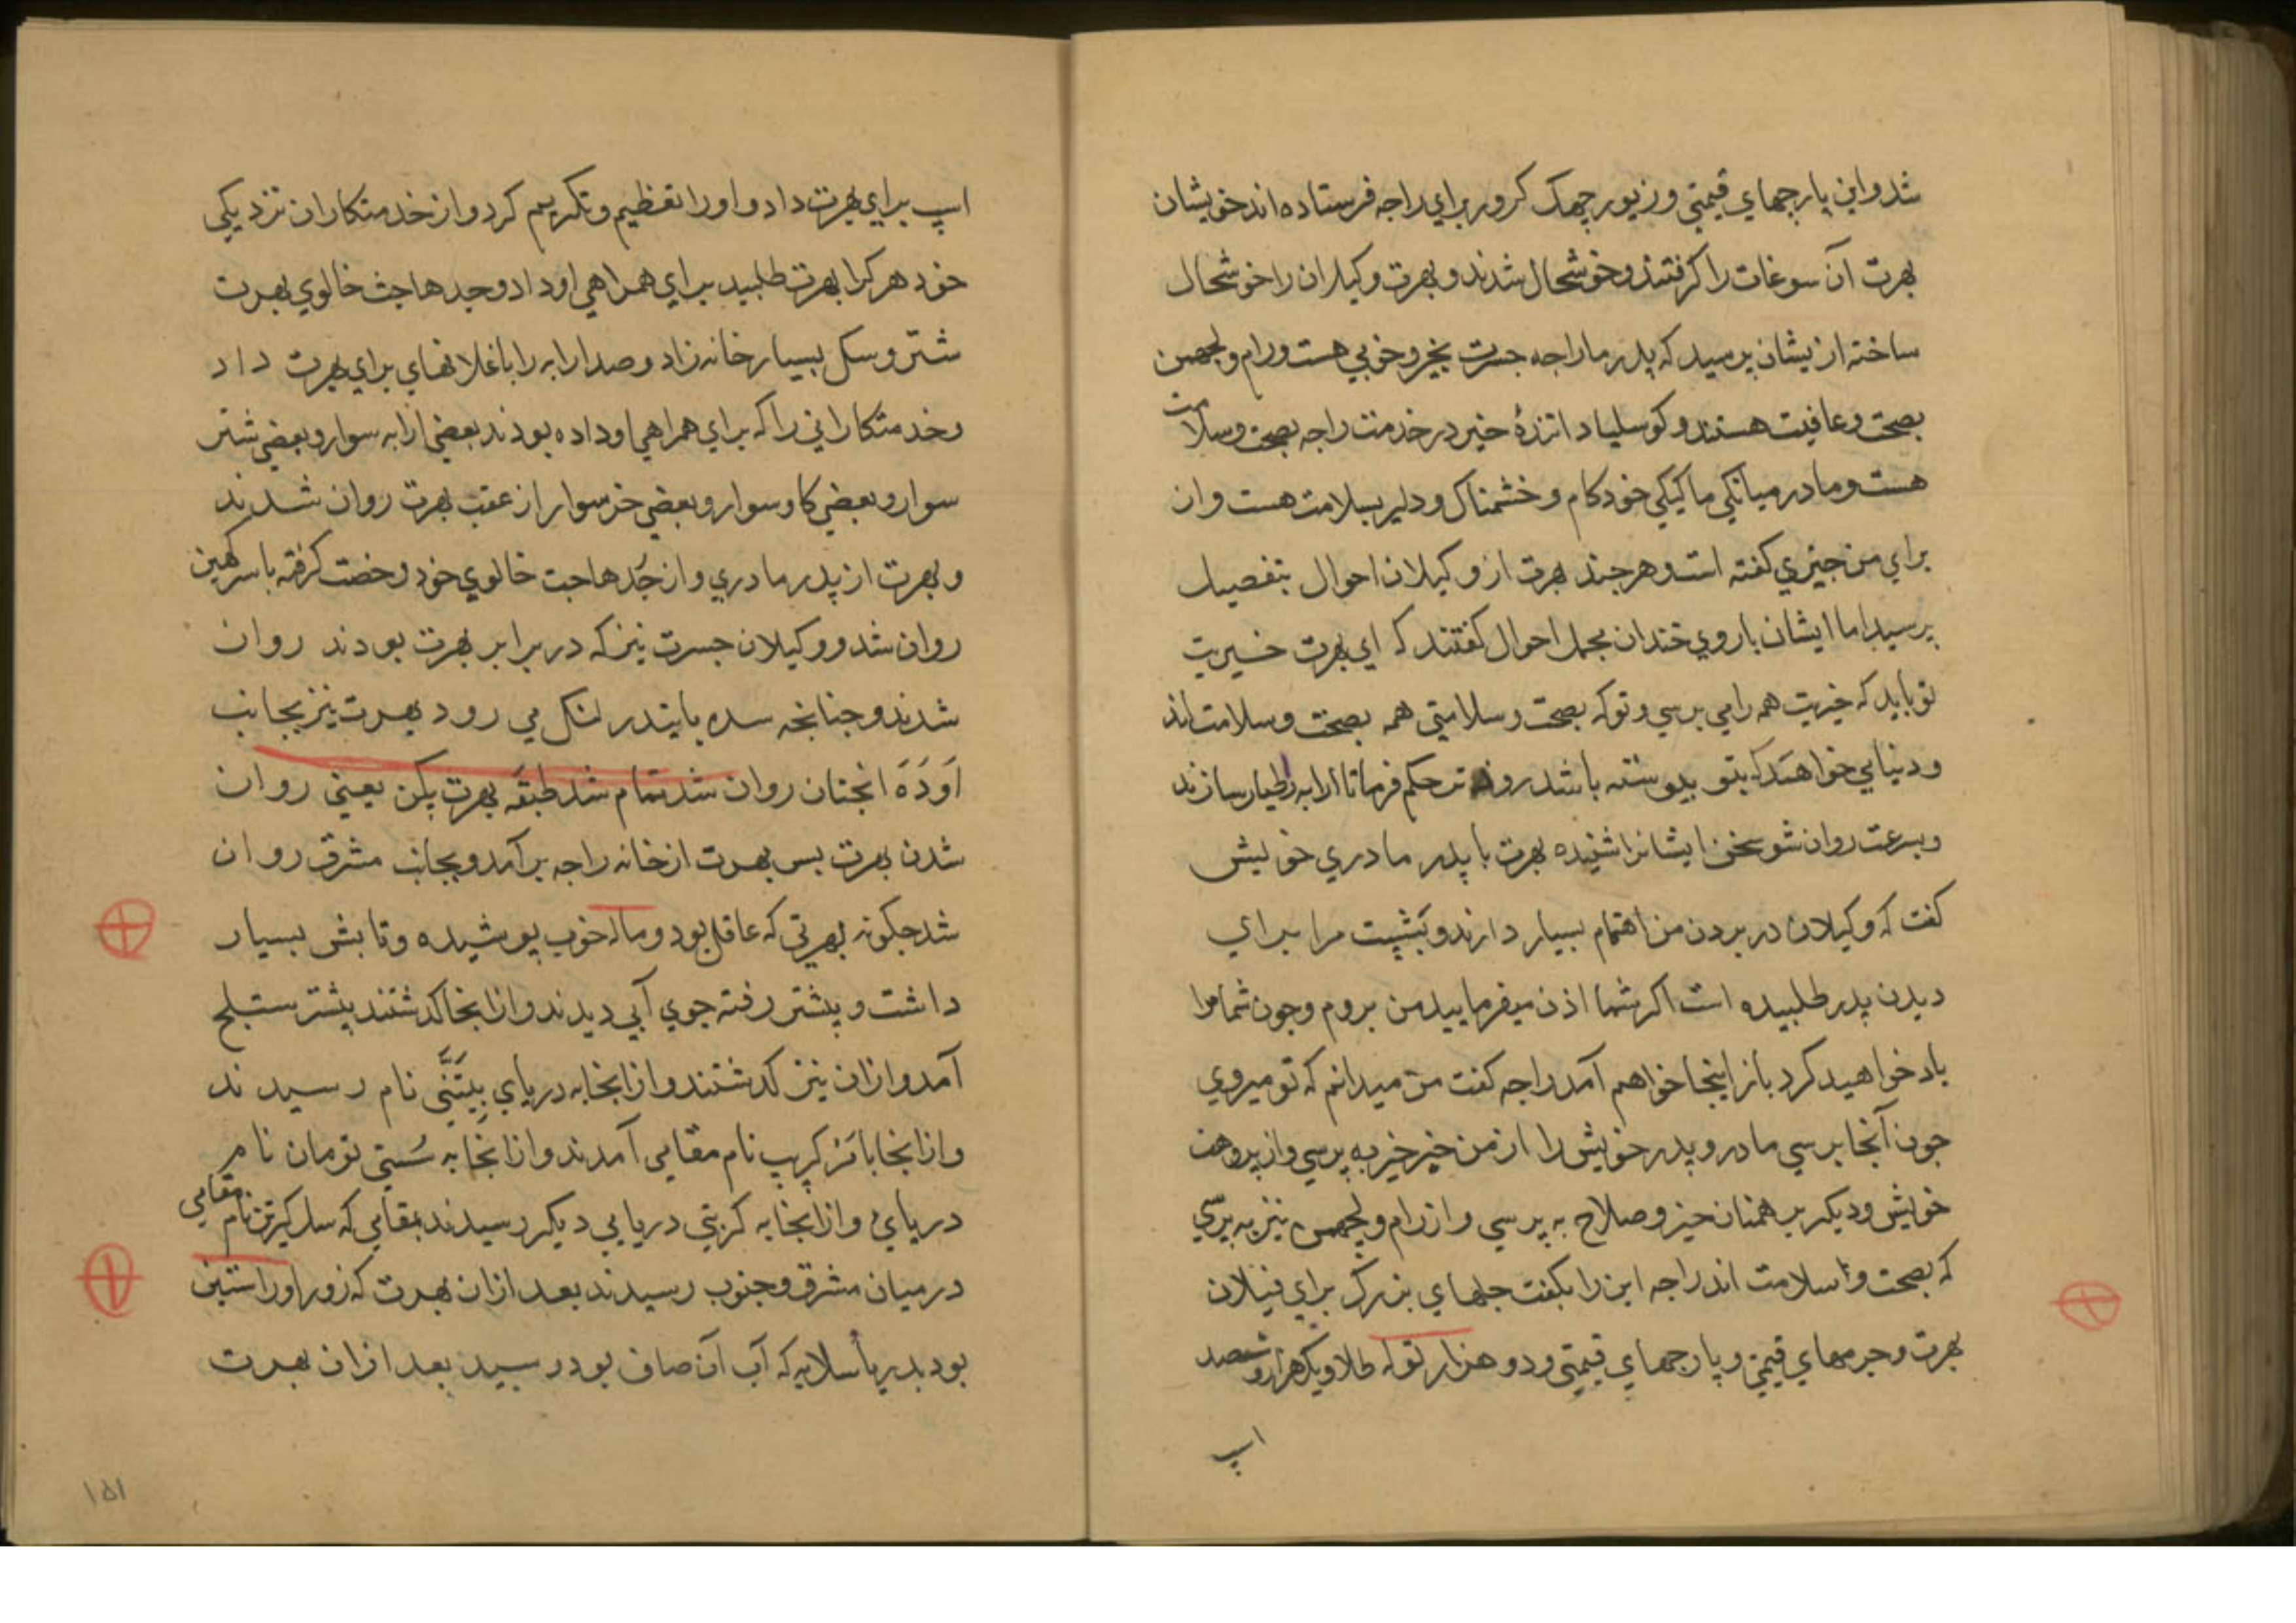 شد و این پارچهای قیمتی و زیور چهک کرور برای راجه فرستاده اند خویشان
بهرت آن سوغات را کرفتند و خوشحال شدند و بهرت وکیلان را خوشحال
ساخته ازیشان پرسید که پدر ما راجه جسرت بخیر و خوبی هست و رام و لچهمن
بصحت و عافیت هستند و کوسلیا داننده خیر در خدمت راجه بصحت و سلامت
هست و مادر میانکی ما کیکی خودکام و خشمناک و دلیر بسلامت هست و ان
برای من چیزی کفته است و هر چند بهرت از وکیلان احوال بتفصیل
پرسید اما ایشان با روی خندان مجمل احوال کفتند که ای بهرت خیریت
تو باید که خیریت همه را می پرسی و تو که بصحت و سلامتی همه بصحت و سلامت اند
و دنیایی خواهند که بتو پیوسته باشد حکم فرما تا ارابه را طیار سازند
و بسرعت روان شو سخن ایشانرا شنیده بهرت با پدر مادری خویش
کفت که وکیلان در بردن من اهتمام بسیار دارند و بَشِپت مرا برای
دیدن پدر طلبیده است اکر شما اذن میفرمایید من بروم و چون شما مرا
یاد خواهید کرد باز اینجا خواهم آمد راجه کفت من میدانم که تو میروی
چون آنجا برسی مادر و پدر خویش را از من خیر خیر به پرسی و از پروهت
خوایش و دیکر برهمنان خیر و صلاح به پرسی و از رام و لچهمن نیز به پرسی
که بصحت و سلامت اند راجه این را بکفت جلهای بزرک برای فیلان
بهرت و چرمهای قیمتی و پارچهای قیمتی و دو هزار توله طلا و یکهزار و شصد
اسپ
اسپ برای بهرت داد و او را تعظیم و تکریم کرد و از خدمتکاران نزدیکی
خود هر کرا بهرت طلبید برای همراهی او داد و جدهاجت خالوی بهرت
شتر و سکل بسیار خانه زاد و صد ارابه را با غلانهای برای بهرت داد
و خدمتکارانی را که برای همراهی او داده بودند بعضی ارابه سوار و بعضی شتر
سوار و بعضی کاو سوار و بعضی خر سوار از عقب بهرت روان شدند
و بهرت از پدر مادری و از جُدهاجت خالوی خود رخصت کرفته با سترکهین
روان شد و وکیلان جسرت نیز که در برابر بهرت بودند روان
شدند و چنانچه سده با یندر لنکل می رود بهرت نیز بجانب
اَوَدَه انچنان روان شد تمام شد طبقه بهرت پکن یعنی روان
شدن بهرت پس بهرت از خانه راجه برآمد و بجانب مشرق روان
شد چکونه بهرتی که عاقل بود و ماله خوب پوشیده و تابش بسیار
داشت و پیشتر رفته جوی آبی دیدند و از انجا کذشتند پیشتر ستلج
آمد و ازان نیز کذشتند و از انجا به دریای نام رسیدند
و از انجا با نام مقامی آمدند و از انجا به سُستی تومان نام
دریای و از انجا به کرپتی دریایی دیکر رسیدند بمقامی که سل کیرتن نام مقامی
درمیان مشرق و جنوب رسیدند بعد ازان بهرت که زور او راستین
بود بدریا سلابه که آب آن صاف بود رسید بعد ازان بهرت
۱۵۱